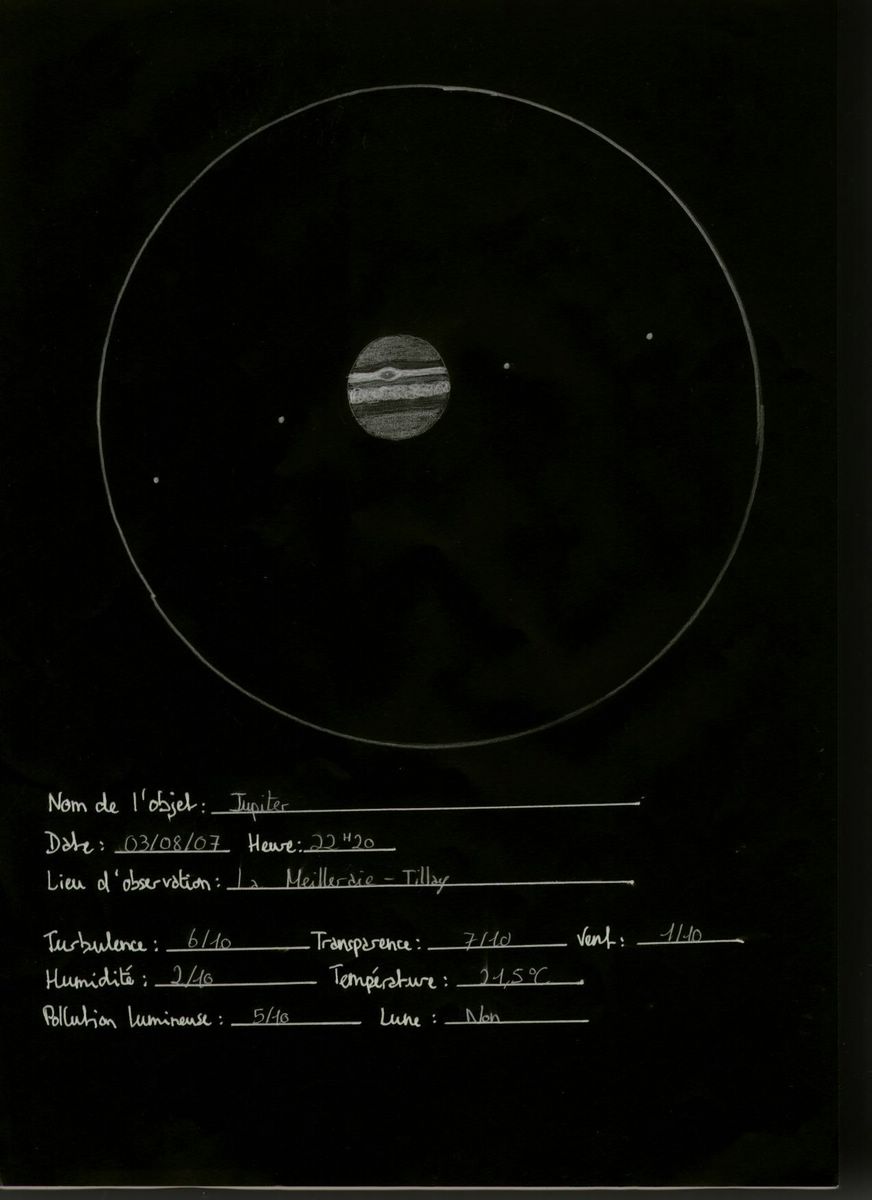 Nom de l'objet: Jupiter
Date: 03/08/07 Heure: 22H20
Lieu d'observation: La Meilleraie - Tillay
Turbulence: 6/10 Transparence: 7/10 Vent: 1/10
Humidité: 2/10 Température: 21,5°C
Pollution lumineuse: 5/10 Lune: Non